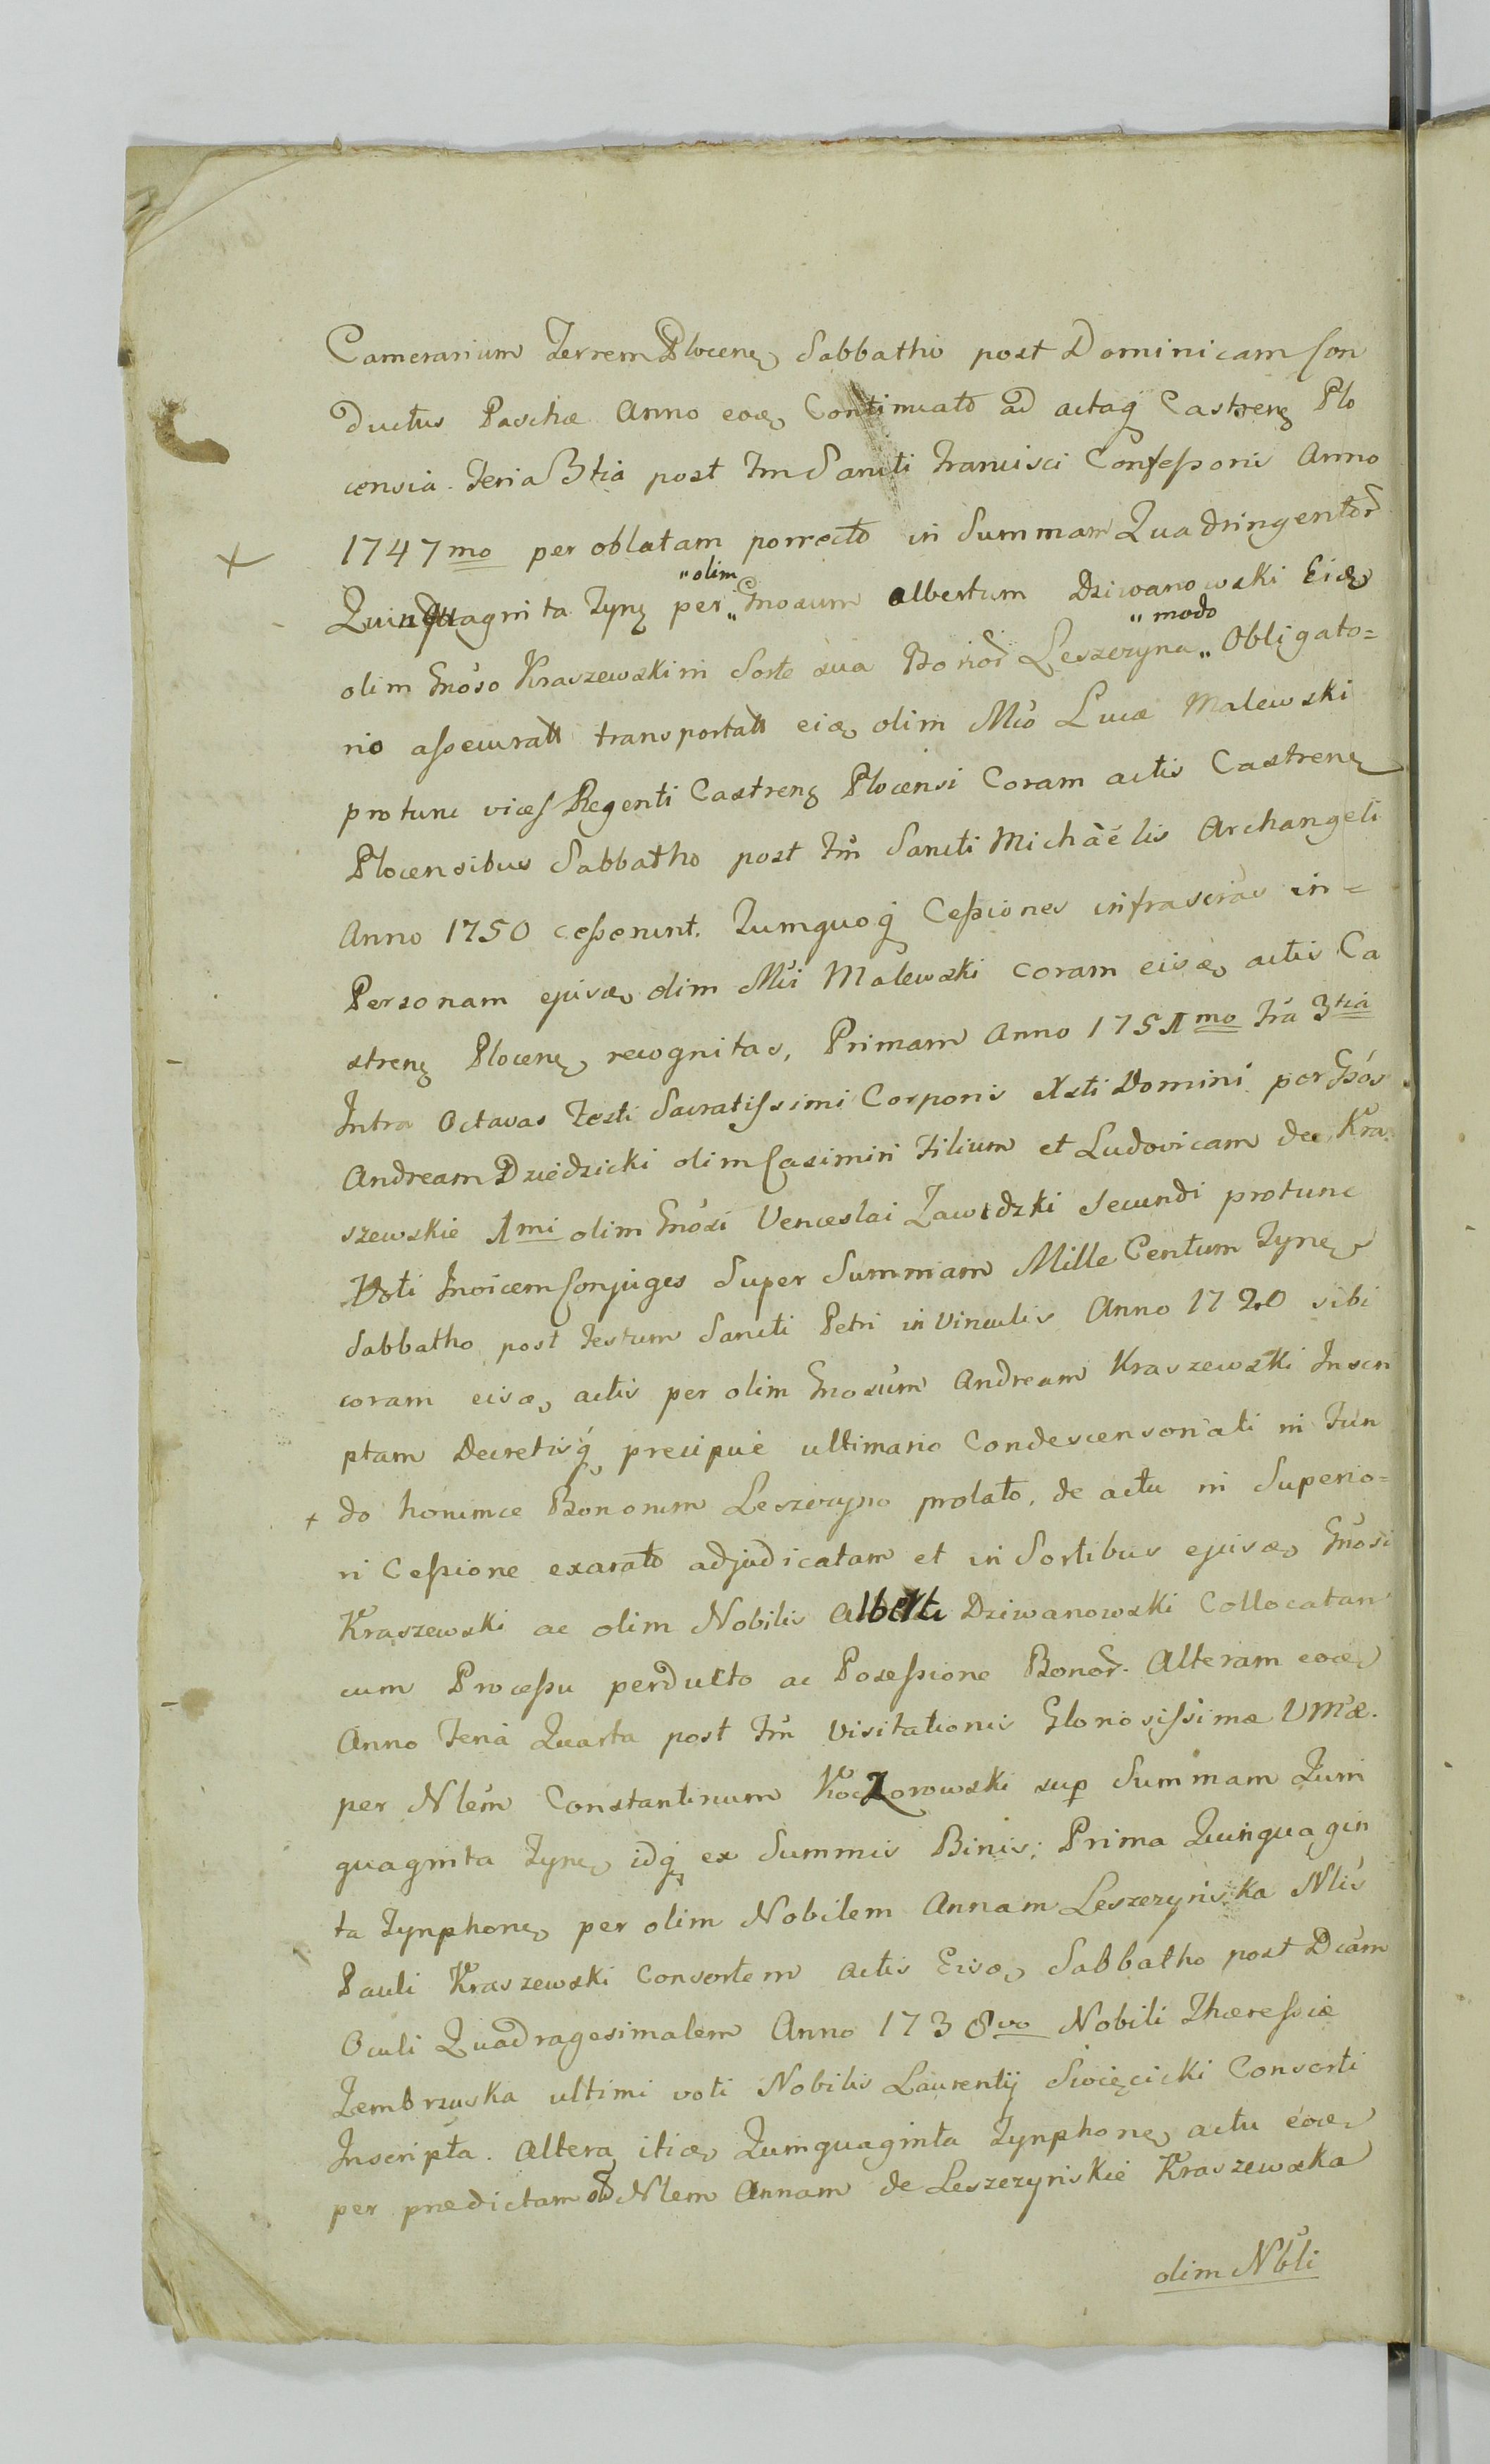 Camerarium Terrem Plocenę Sabbatho post Dominicam Con
ductus Paschæ Anno eoæ, Continuato ad actaq́ Castrenę Plo
censia. Feria 3tia post Fm Sancti Francisci Confessoris Anno
1747mo per oblatam porrecto in Summam Quadringentor
Quinquaginta Tynę per "olim Gnosum Albertum Dziwanowski Eidę
olim Gnoso Kraszewski in Sorte sua Bonor Leszczyna "modo Obligato=
rio assecuratt transportatt eiæ, olim Mco Lucæ Malewski
protunc vices Regenti Castrenę Plocensi Coram actis Castrenę
Plocensibus Sabbatho post Fm Sancti Michàélis Archangeli
Anno 1750 cesserunt. Tumquoq́ Cessiones infrascrás in=
Personam ejusæ, olim Mci Malewski coram eisæ, actis Ca
strenę Plocenę, recognitas, Primam Anno 1751mo Fra 3tia
Intra Octavas Festi Sacratissimi Corporis Xsti Domini per Gsós
Andream Dziedzicki olim Casimiri Filium et Ludovicam de Kra
szewskie 1mi olim Gnosi Venceslai Zawidzki Secundi protunc
Voti Invicem Conjuges Super Summam Mille Centum Tynę
Sabbatho post Festum Sancti Petri in Vinculis Anno 1720 sibi
coram eisæ, actis per olim Gnosum Andream Kraszewski Inscri
ptam Decretisq́, precipue ultimario Condescensoriali in Fun
+ do horumce Bonorum Leszczyno prolato, de actu in Superio=
ri Cessione exarato adjudicatam et in Sortibus ejusæ, Gnosi
Kraszewski ac olim Nobilis Alberti Dziwanowski Collocatam
cum Processu perducto ac Possessione Bonor. Alteram eoæ,
Anno Feria Quarta post Fm Visitationis Gloriosissimæ VMæ.
per Nlem Constantinum Koczorowski sup Summam Quin
quaginta Tynę, idq́ ex Summis Binis; Prima Quinquagin
ta Tynphonę, per olim Nobilem Annam Leszczyńska Nlis
Pauli Kraszewski Consortem actis Eisæ, Sabbatho post Dcam
Oculi Quadragesimalem Anno 1738vo Nobili Thæressiæ
Zembrzuska ultimi voti Nobilis Laurentij Swięcicki Consorti
Inscripta. Altera itiæ, Quinquaginta Tynphonę, actu eoæ,
per prædictam ol Nlem Annam de Leszczyńskie Kraszewska
olim Nbli